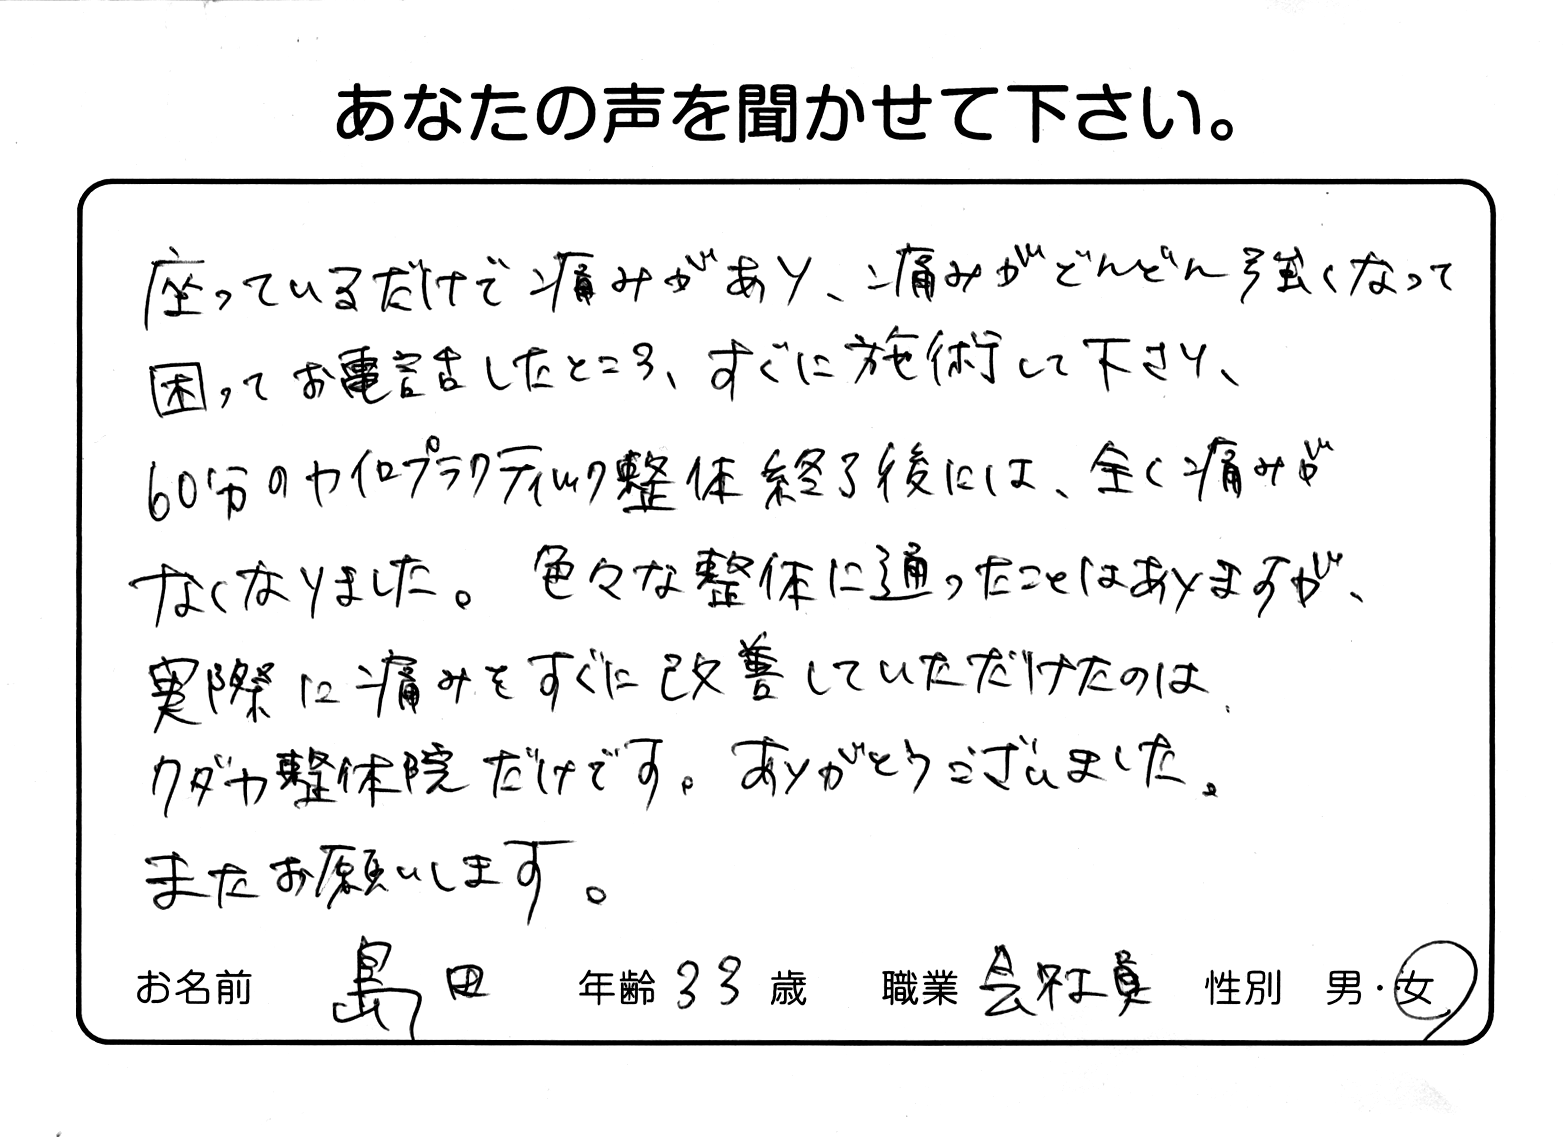 あなたの声を聞かせて下さい。
座っているだけで痛みがあり、痛みがどんどん強くなって
困ってお電話したところ、すぐに施術して下さり、
60分のカイロプラクティック整体終了後には、全く痛みが
なくなりました。色々な整体に通ったことはありますが、
実際に痛みをすぐに改善していただけたのは
クダカ整体院だけです。ありがとうございました。
またお願いします。
お名前 島田 年齢 33 歳 職業 会社員 性別 男・女